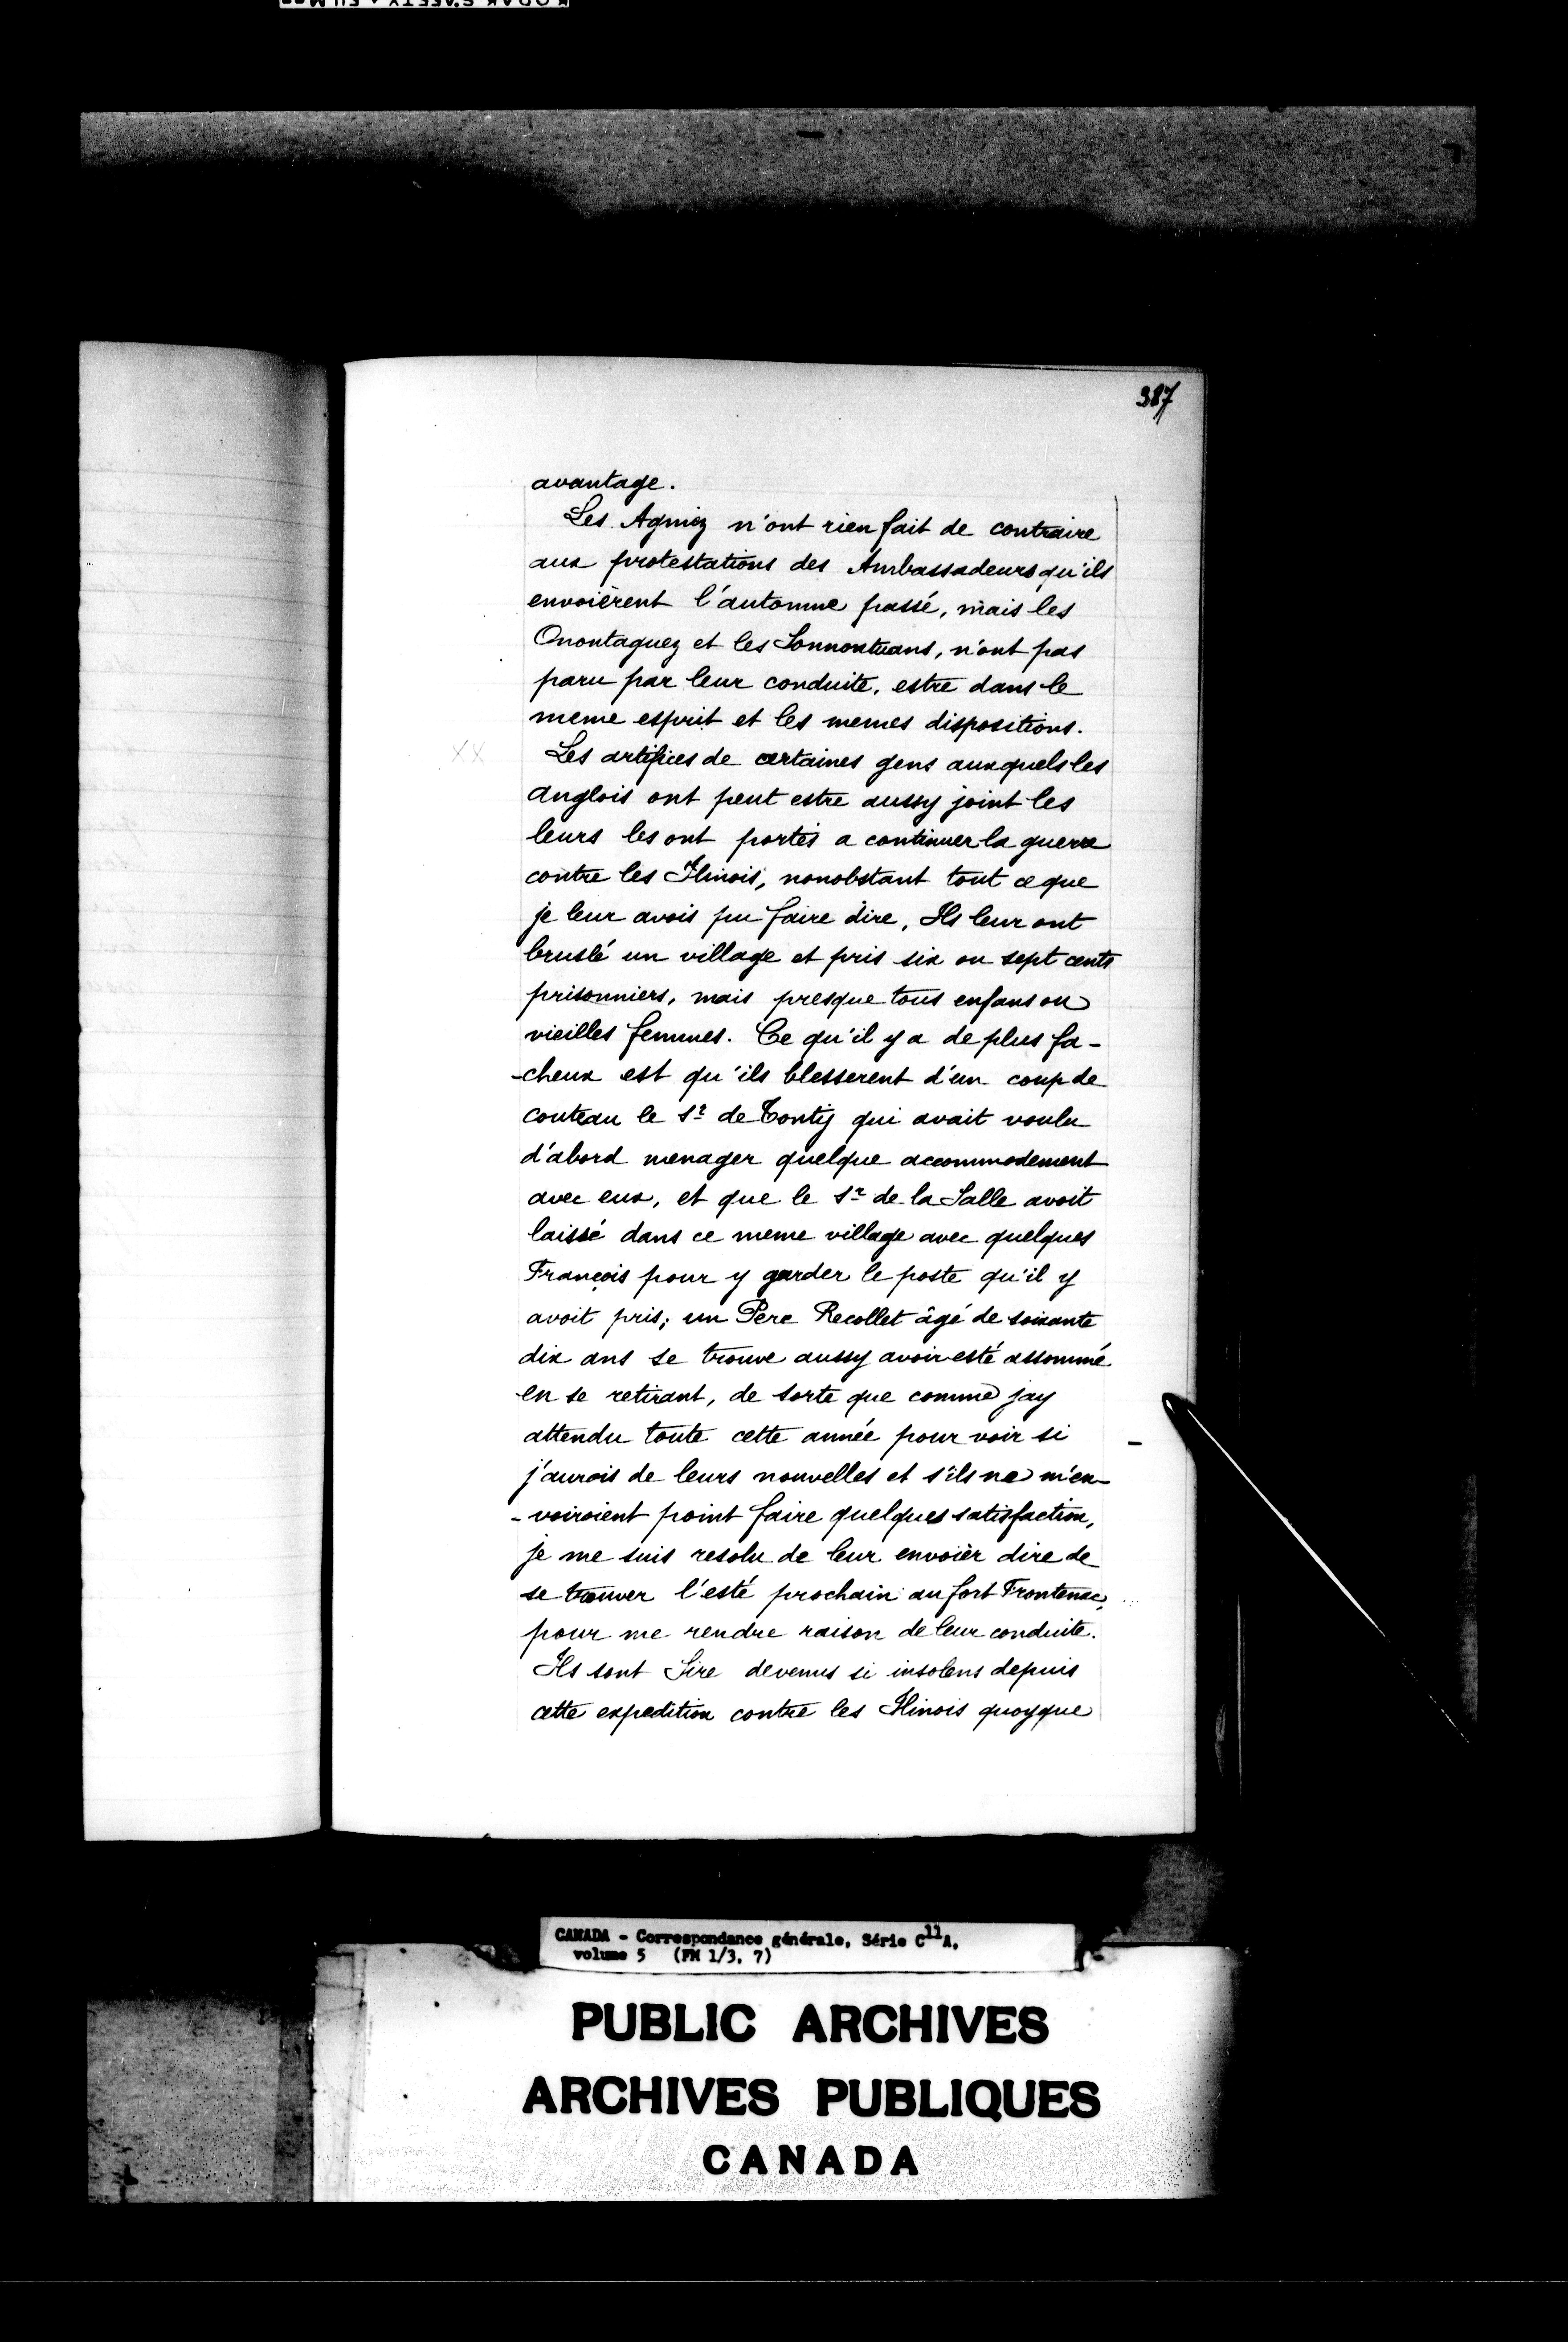 387
avantage.
Les Agniez n'ont rien fait de contraire
aux protestations des Ambassadeurs qu'ils
envoièrent l'automne passé, mais les
Onontaguez et les Sonnontuans, n'ont pas
paru par leur conduite, estre dans le
meme esprit et les memes dispositions.
XX
Les artifices de certaines gens auxquels les
anglois ont peut estre aussy joint les
leurs les ont portés a continuer la guerre
contre les Ilinois, nonobstant tout ce que
je leur avois pu faire dire, Ils leur ont
bruslé un village et pris six ou sept cents
prisonniers, mais presque tous enfans ou
vieilles femmes. Ce qu'il y a de plus fa-
-cheux est qu'ils blesserent d'un coup de
couteau le Sr de Tonty qui avait voulu
d'abord menager quelque accommodement
avec eux, et que le Sr de la Salle avoit
laissé dans ce meme village avec quelques
François pour y garder le poste qu'il y
avoit pris; un Père Recollet âgé de soixante
dix ans se trouve aussy avoir esté assommé
en se retirant, de sorte que comme jay
attendu toute cette année pour voir si
j'aurois de leurs nouvelles et s'ils ne m'en-
-voiroient point faire quelques satisfaction,
je me suis resolu de leur envoièr dire de
se trouver l'esté prochain au fort Frontenac,
pour me rendre raison de leur conduite.
Ils sont Sire devenus si insolens depuis
cette expedition contre les Ilinois quoyque
CANADA - Correspondance générale, Série C11A,
volume 5 (FM 1/3, 7)
PUBLIC ARCHIVES
ARCHIVES PUBLIQUES
CANADA